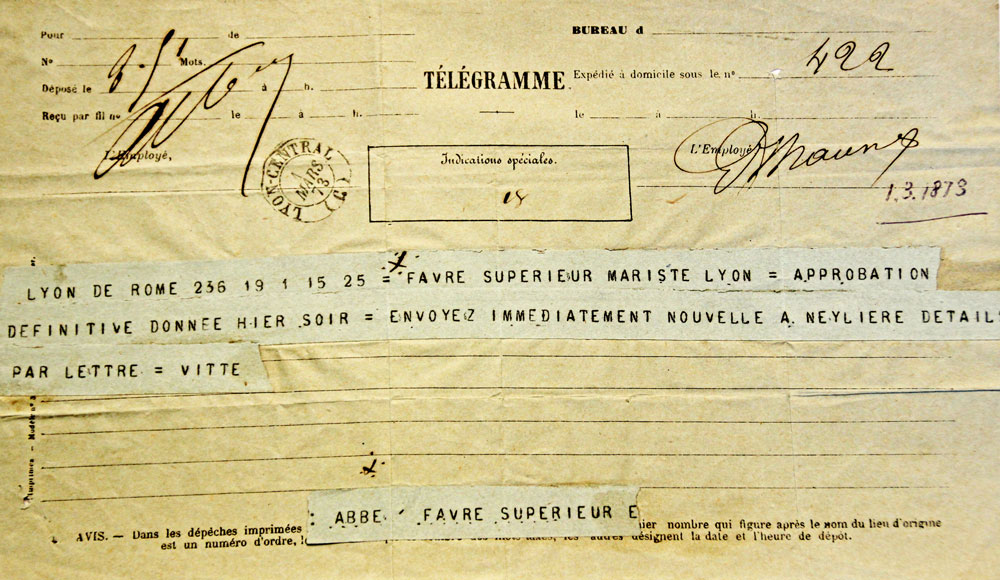 Pour de BUREAU d
No Mots. TÉLÉGRAMME. Expédié à domicile sous le nº 422
Déposé le à h.
Reçu par fil nº le à h. le à h.
L'Employé, L'Employé
LYON-CENTRAL
1
MARS
73
Indications spéciales.
1.3.1873
LYON DE ROME 236 19 1 15 25 = FAVRE SUPERIEUR MARISTE LYON = APPROBATION
DEFINITIVE DONNEE HIER SOIR = ENVOYEZ IMMEDIATEMENT NOUVELLE A NEYLIERE DETAILS
PAR LETTRE = VITTE
: ABBE FAVRE SUPERIEUR E
AVIS. — Dans les dépêches imprimées nombre qui figure après le nom du lieu d'origine
est un numéro d'ordre, désignent la date et l'heure de dépôt.